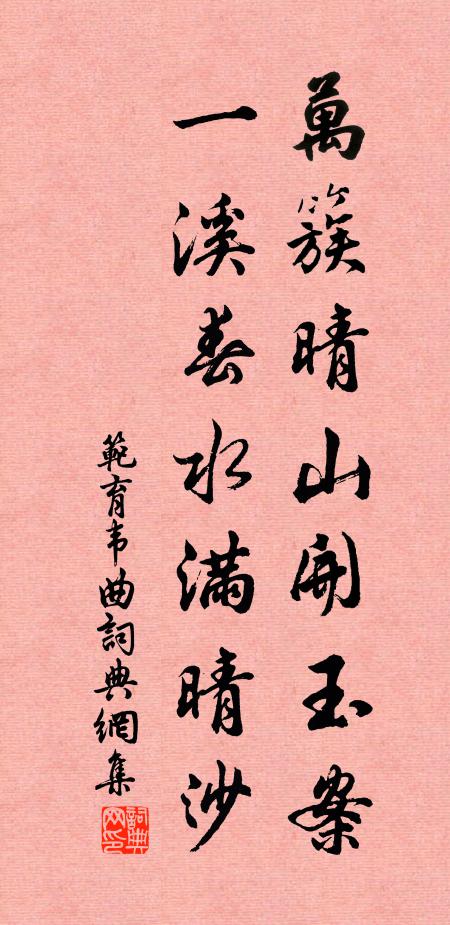 萬簇晴山開玉案
一溪春水滿晴沙
範育韦曲詞典網集
詞典网印